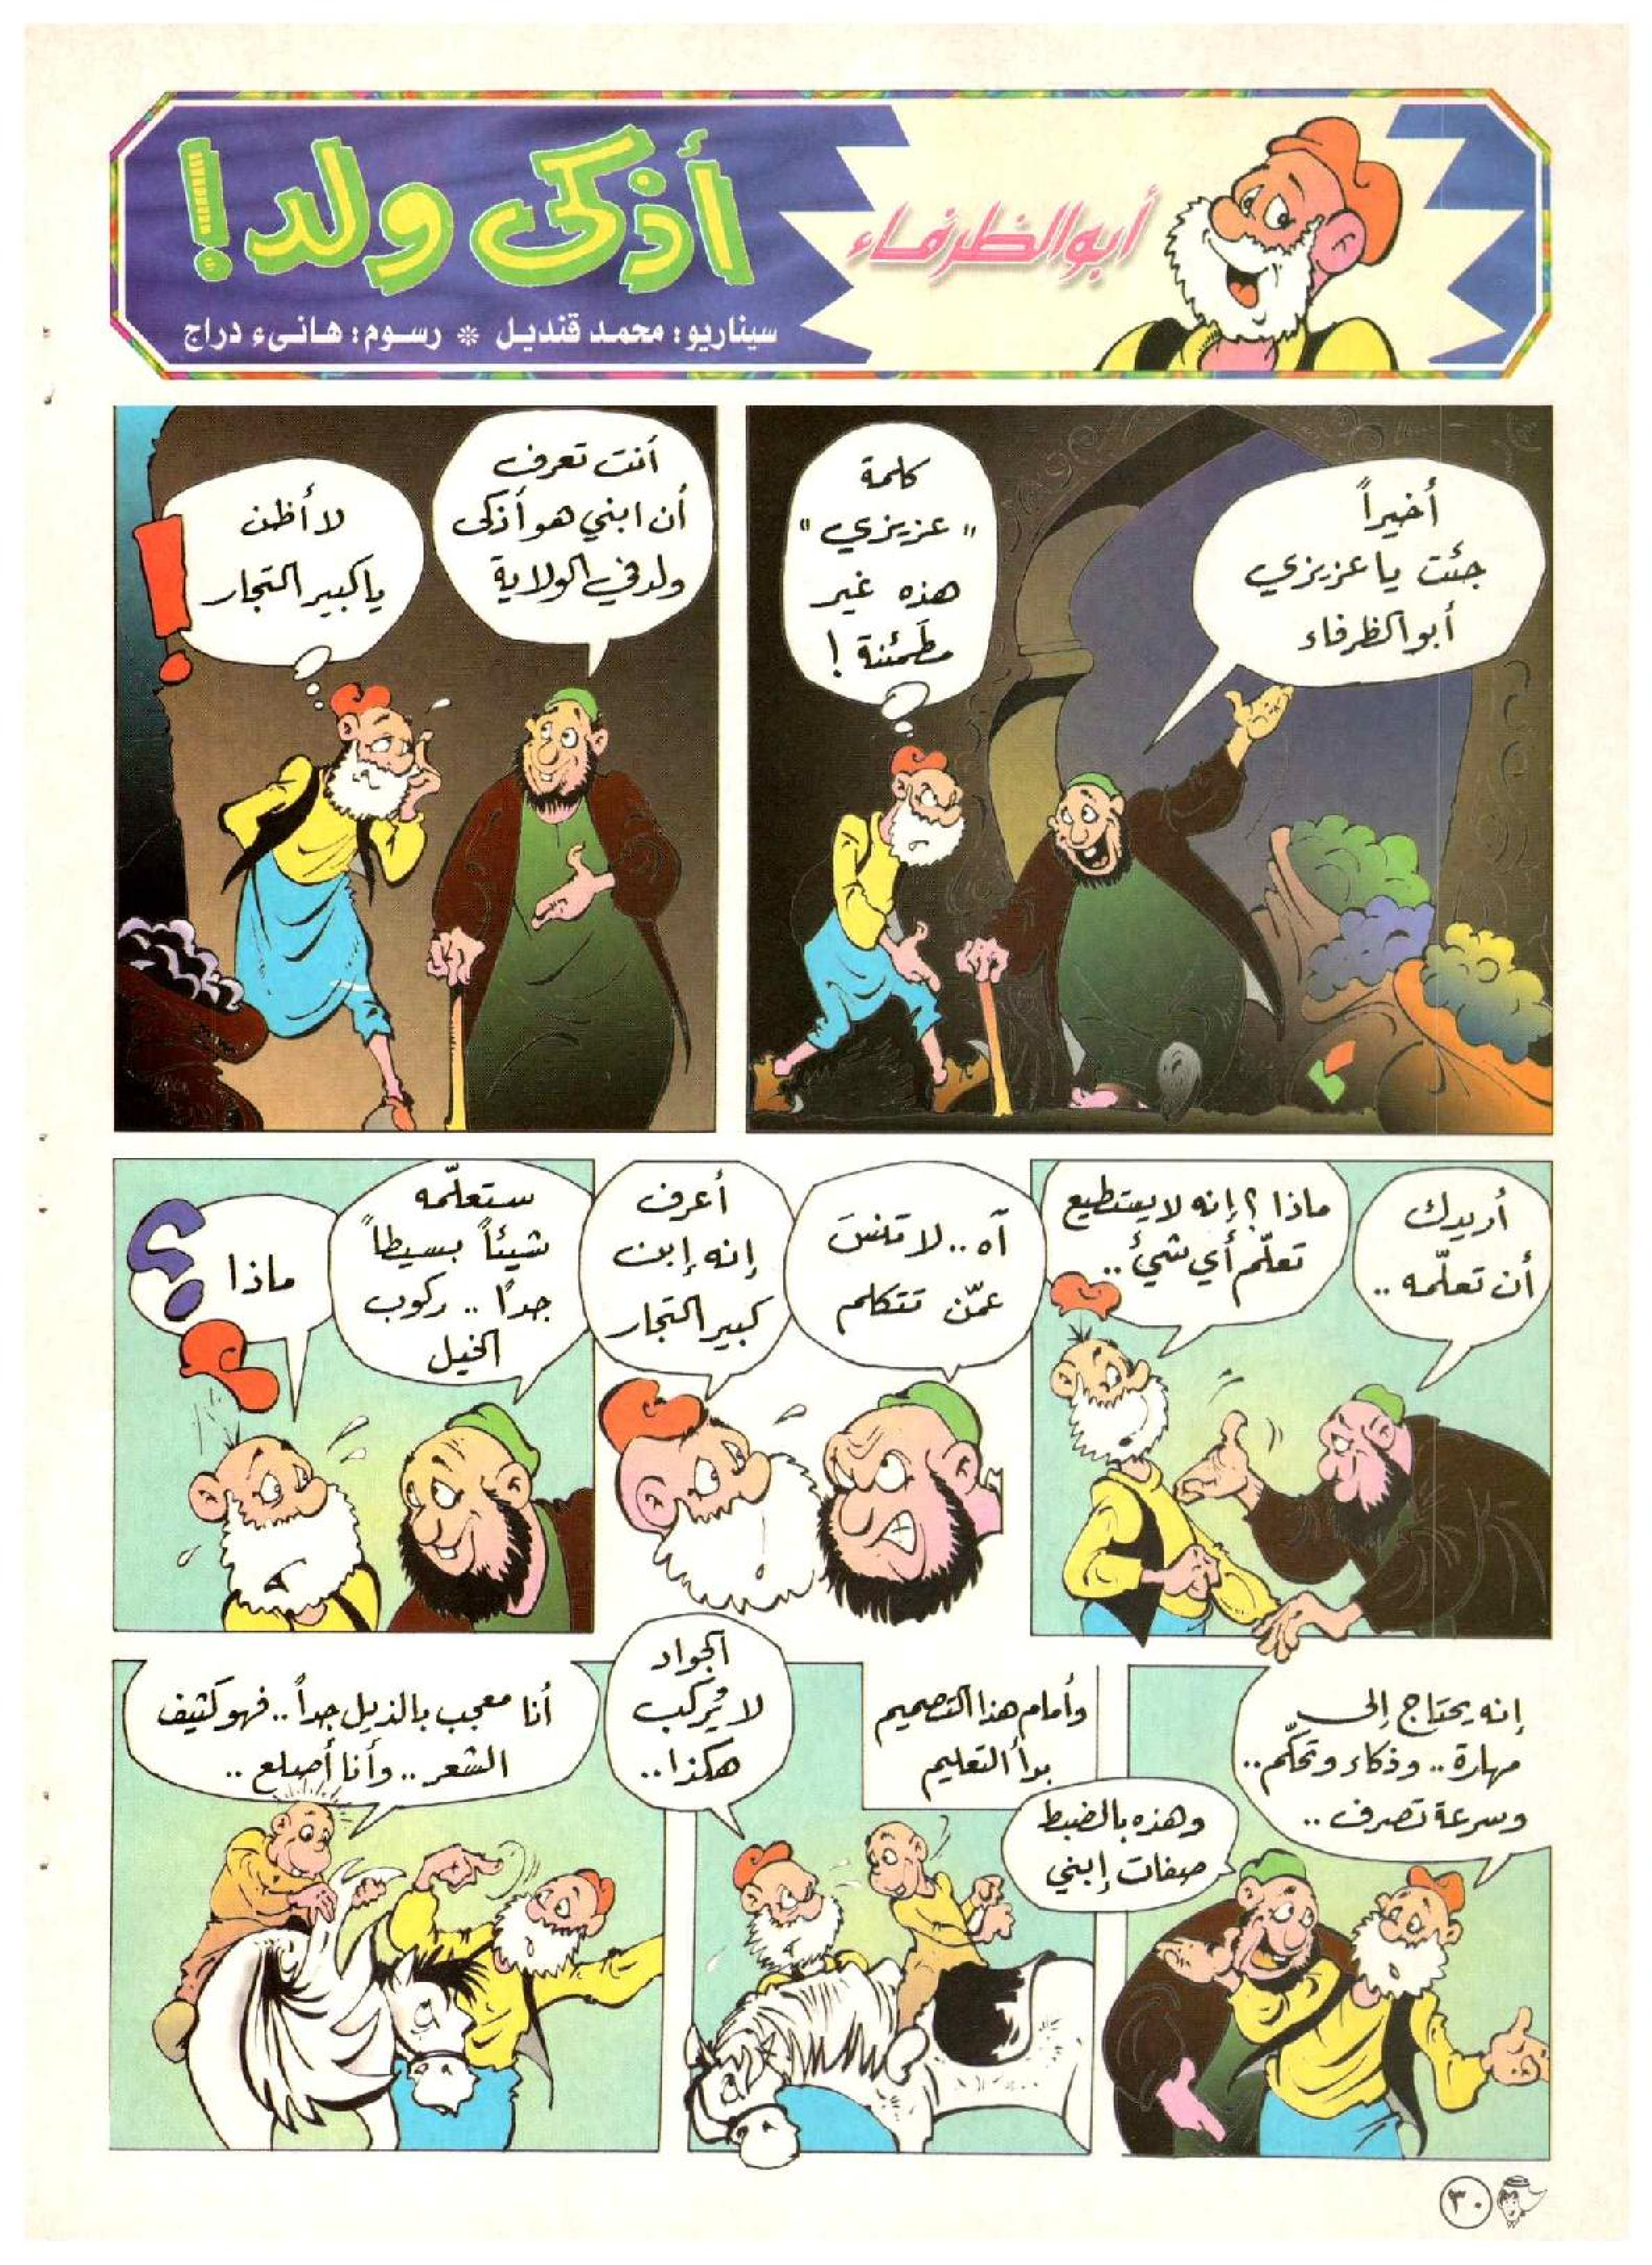 أبو الظرفاء
أذكى ولد!
سيناريو: محمد قنديل * رسوم: هانىء دراج
أخيراً
جئت يا عزيزي
أبو الظرفاء
كلمة
"عزيزي"
هذه غير
مطمئنة!
أنت تعرف
أن ابني هو أذكى
ولد في الولاية
لا أظن
يا كبير التجار
!
أريدك
أن تعلّمه..
ماذا؟ إنه لا يستطيع
تعلّم أي شيء..
آه.. لا تنسَ
عمّن تتكلم
أعرف
إنه إبن
كبير التجار
ستعلّمه
شيئاً بسيطاً
جداً.. ركوب
الخيل
ماذا
؟
إنه يحتاج إلى
مهارة.. وذكاء وتحكّم..
وسرعة تصرف..
وهذه بالضبط
صفات إبني
وأمام هذا التصميم
بدأ التعليم
الجواد
لا يُركب
هكذا..
أنا معجب بالذيل جداً.. فهو كثيف
الشعر.. وأنا أصلع..
٣٠